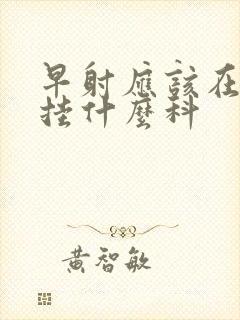 早射應該在
挂什麼科
黃智敏